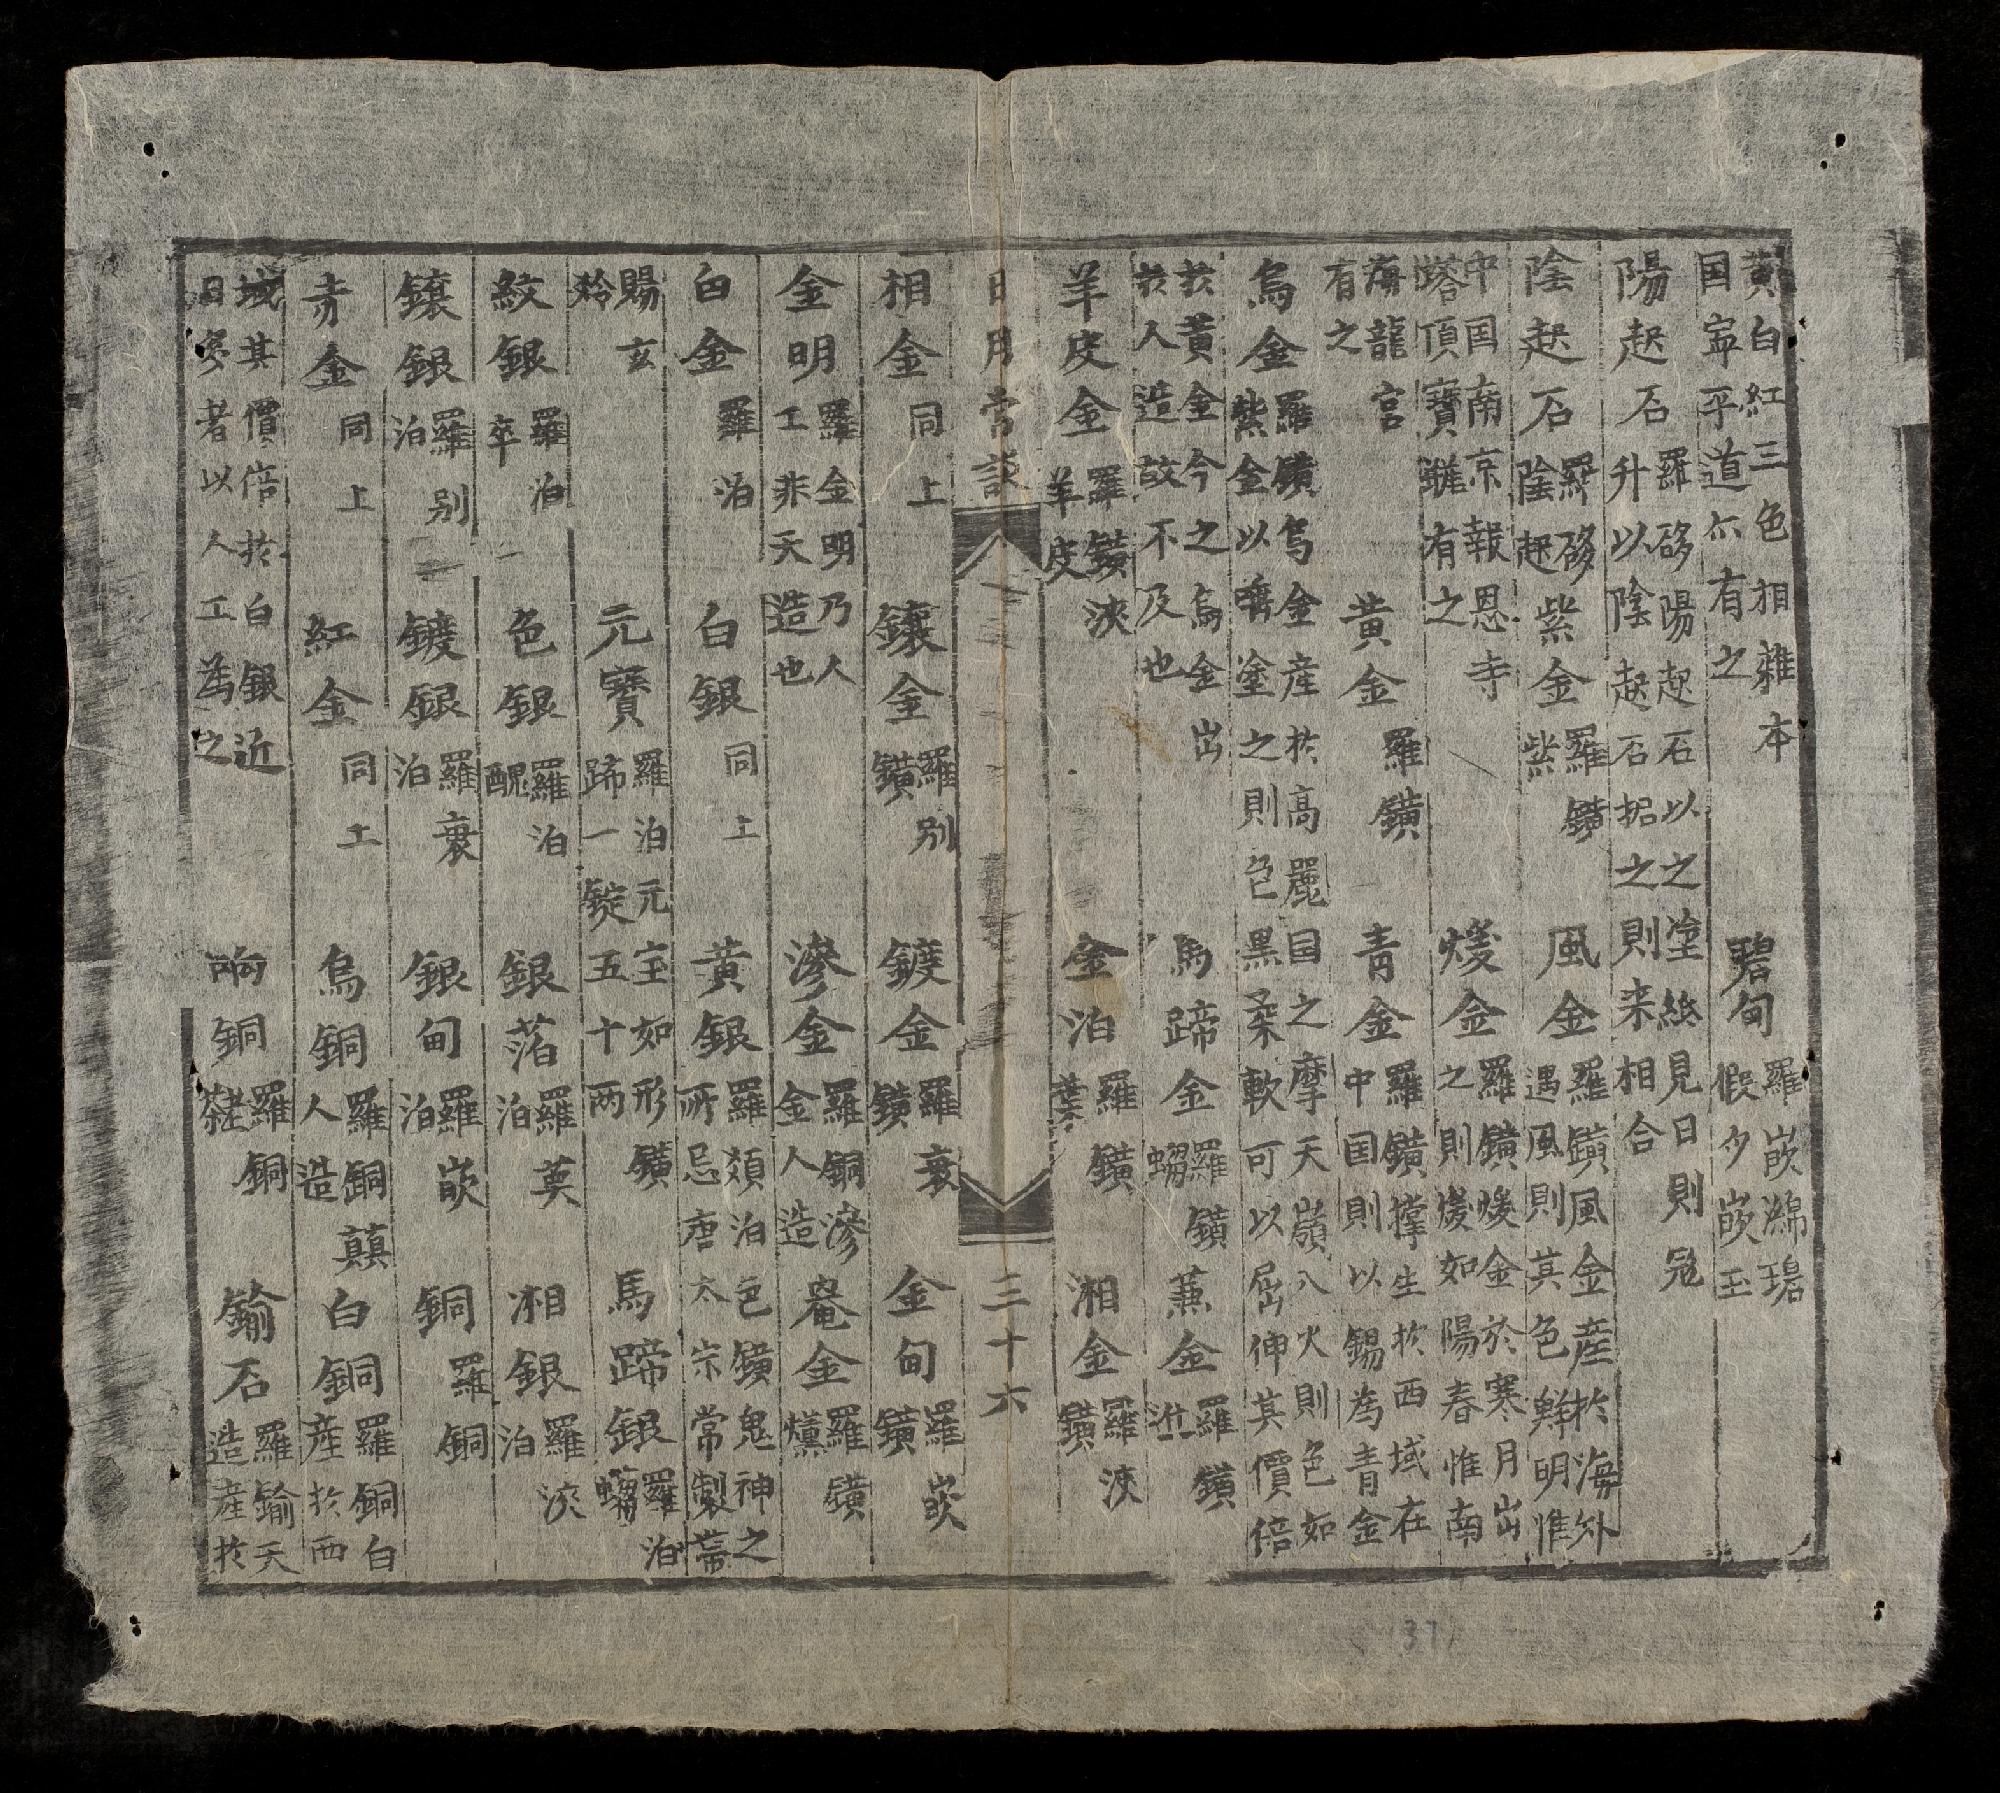 黄白紅三色相雜本
国寧平道尒有之
碧甸
羅嵌綿碧
假夕嵌玉
陽起石
羅硳陽起石以之塗紙見日則冠
升以陰起石拠之則来相合
陰起石
羅硳
陰起
紫金
羅鐄
紫
風金
羅鐄風金産於海外
遇風則其色鮮明惟
中国南京報恩寺
塔頂寶鏟有之
煖金
羅鐄煖金於寒月出
之則煖如陽春惟南
海龍宫
有之
黄金
羅鐄
青金
羅鐄撑生於西域在
中国則以錫為青金
烏金
羅鐄烏金産於高麗国之摩天嶺入火則色如
紫金以唾塗之則色黒柔軟可以屈伸其價倍
於黄金今之烏金出
於人造故不及也
馬蹄金
羅鐄
蟧
薫金
羅鐄
羊皮金
羅鐄浹
羊皮
金泊
羅鐄
葉
湘金
羅浹
鐄
日用常談
三十六
相金
同上
鑲金
羅別
鐄
鍍金
羅衮
鐄
金甸
羅嵌
鐄
金明
羅金明乃人
工非天造也
滲金
羅銅滲
金人造
罨金
羅鐄
爋
白金
羅泊
白銀
同上
黄銀
羅頦泊色鐄鬼神之
所忌唐太宗常製帯
賜玄
齡
元寳
羅泊元宝如形鐄
蹄一錠五十两
馬蹄銀
羅泊
蟧
紋銀
羅泊
卒
色銀
羅泊
醜
銀箔
羅莫
泊
湘銀
羅浹
泊
鑲銀
羅別
泊
鍍銀
羅衮
泊
銀甸
羅嵌
泊
銅
羅銅
赤金
同上
紅金
同上
烏銅
羅銅顛
人造
白銅
羅銅白
産於西
域其價倍於白銀近
日市者以人工為之
响銅
羅銅
鍮石
羅鍮天
造産於
37